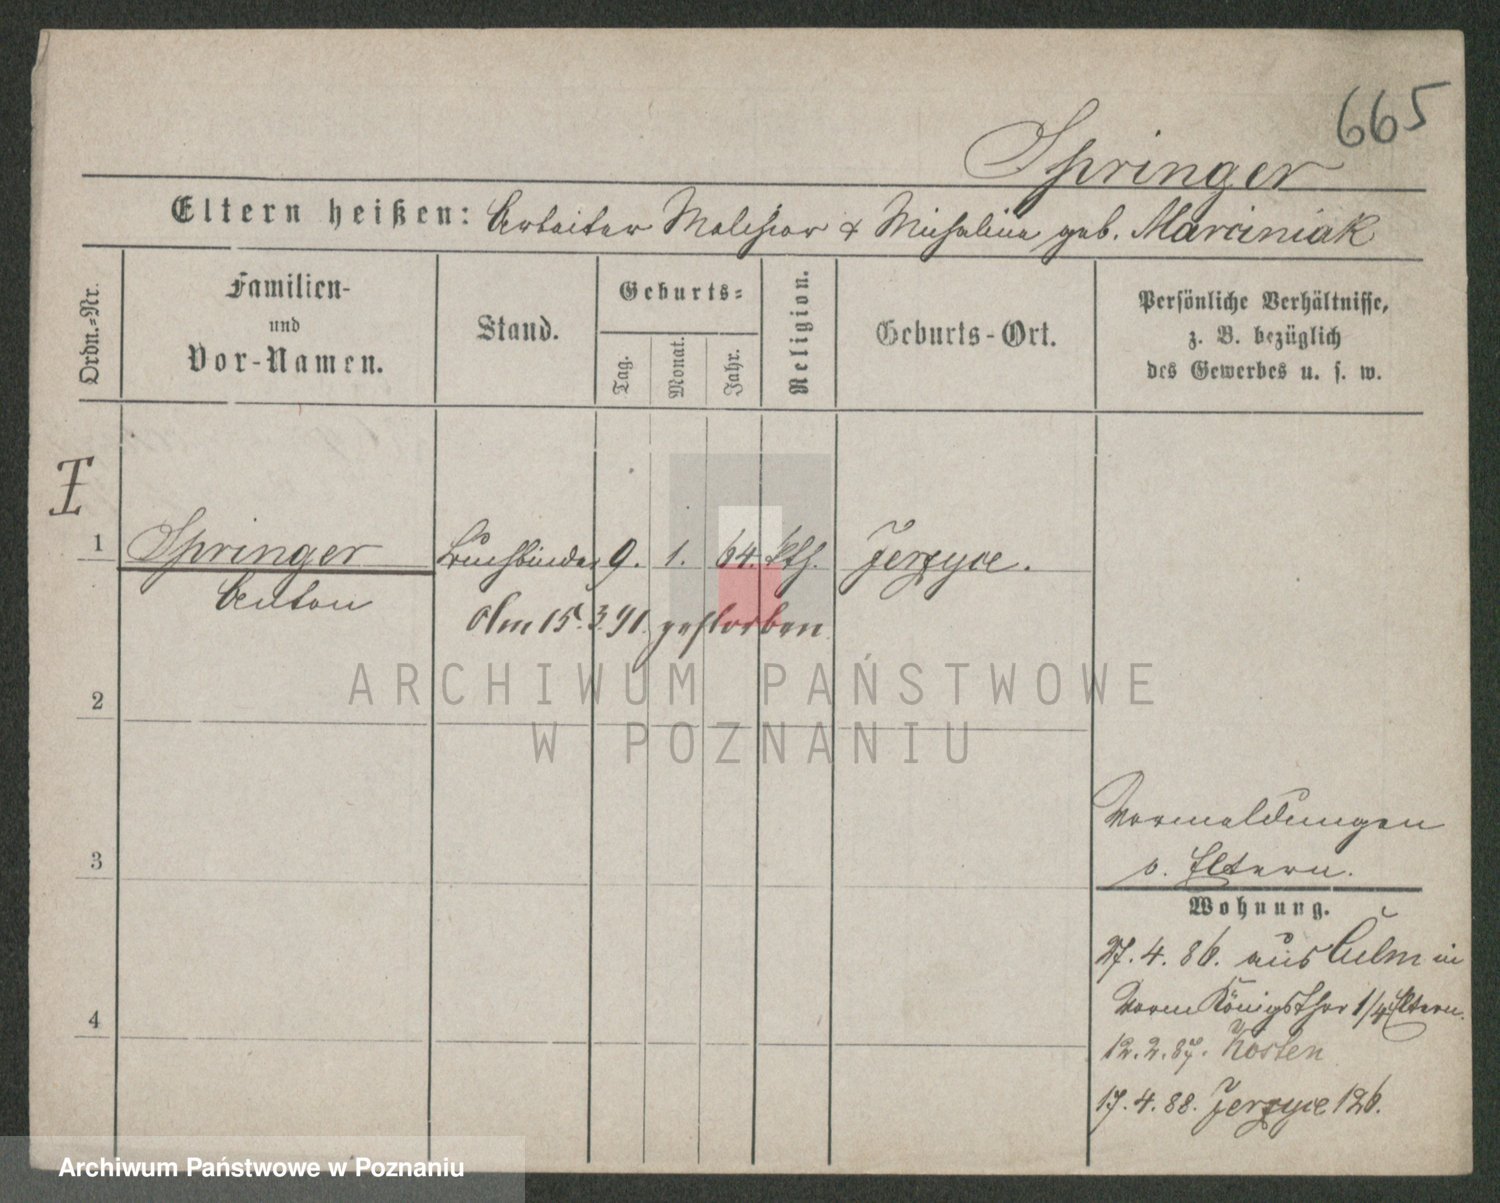 665
Springer
Eltern heißen: Arbeiter Melchior & Michalina geb. Marciniak
Ordn.=Nr.
Familien-
und
Vor-Namen.
Stand.
Geburts=
Tag.
Monat.
Jahr.
Religion.
Geburts-Ort.
Persönliche Verhältnisse,
z. B. bezüglich
des Gewerbes u. s. w.
I
1 Springer Buchbinder 9. 1. 64. kth. Jerzyce.
Anton
Am 15.3.91. gestorben
ARCHIWUM PAŃSTWOWE
W POZNANIU
2
3
4
Vormeldungen
s. Eltern.
Wohnung.
27. 4. 86. aus Culm in
Vorm Königsthor 1/4 Eltern.
12. 2. 87. Kosten
17. 4. 88. Jerzyce 126.
Archiwum Państwowe w Poznaniu